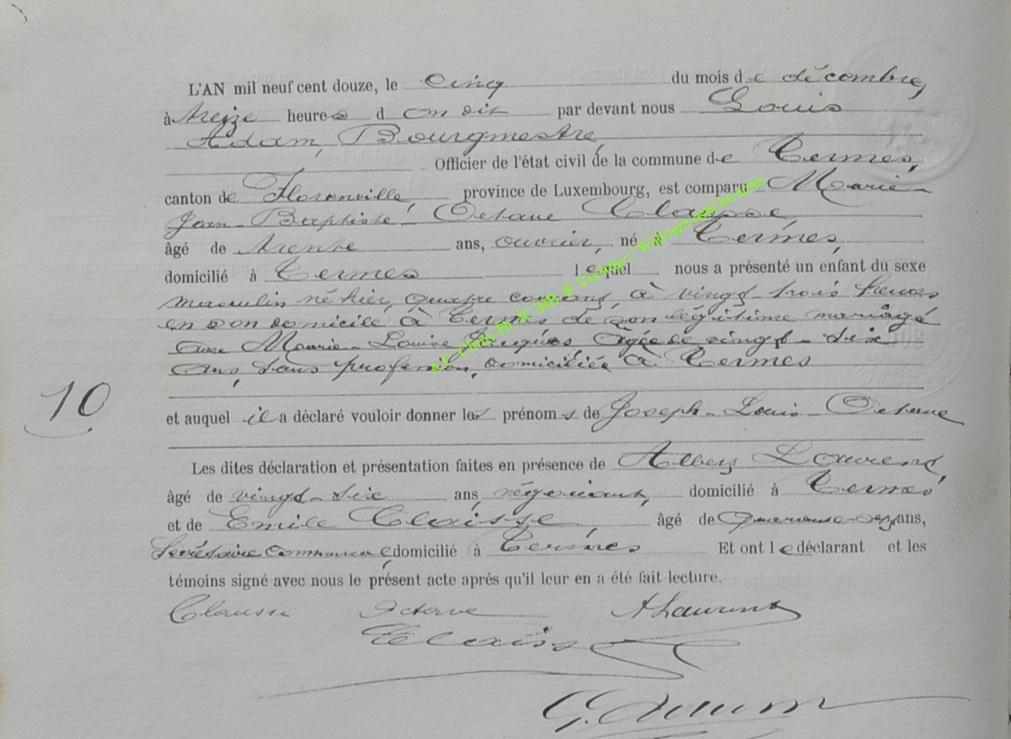 L'AN mil neuf cent douze, le cinq du mois de décembre,
à treize heures d on dit par devant nous Louis
Adam, Bourgmestre,
Officier de l'état civil de la commune de Termes,
canton de Florenville, province de Luxembourg, est comparu Marie-
Jean-Baptiste-Octave Clausse,
âgé de trente ans, ouvrier, né à Termes,
domicilié à Termes lequel nous a présenté un enfant du sexe
masculin né hier, quatre courant, à vingt-trois heures
en son domicile à Termes de son légitime mariage
avec Marie-Louise âgée de vingt-six
ans, sans profession, domiciliée à Termes
10
et auquel il a déclaré vouloir donner les prénoms de Joseph-Louis-Octave
Les dites déclaration et présentation faites en présence de Albert Laurent,
âgé de vingt-six ans, négociant, domicilié à Termes
et de Emile Clausse, âgé de quarante-sept ans,
Secrétaire communal domicilié à Termes Et ont le déclarant et les
témoins signé avec nous le présent acte après qu'il leur en a été fait lecture.
Clausse Octave A Laurent
E Clausse